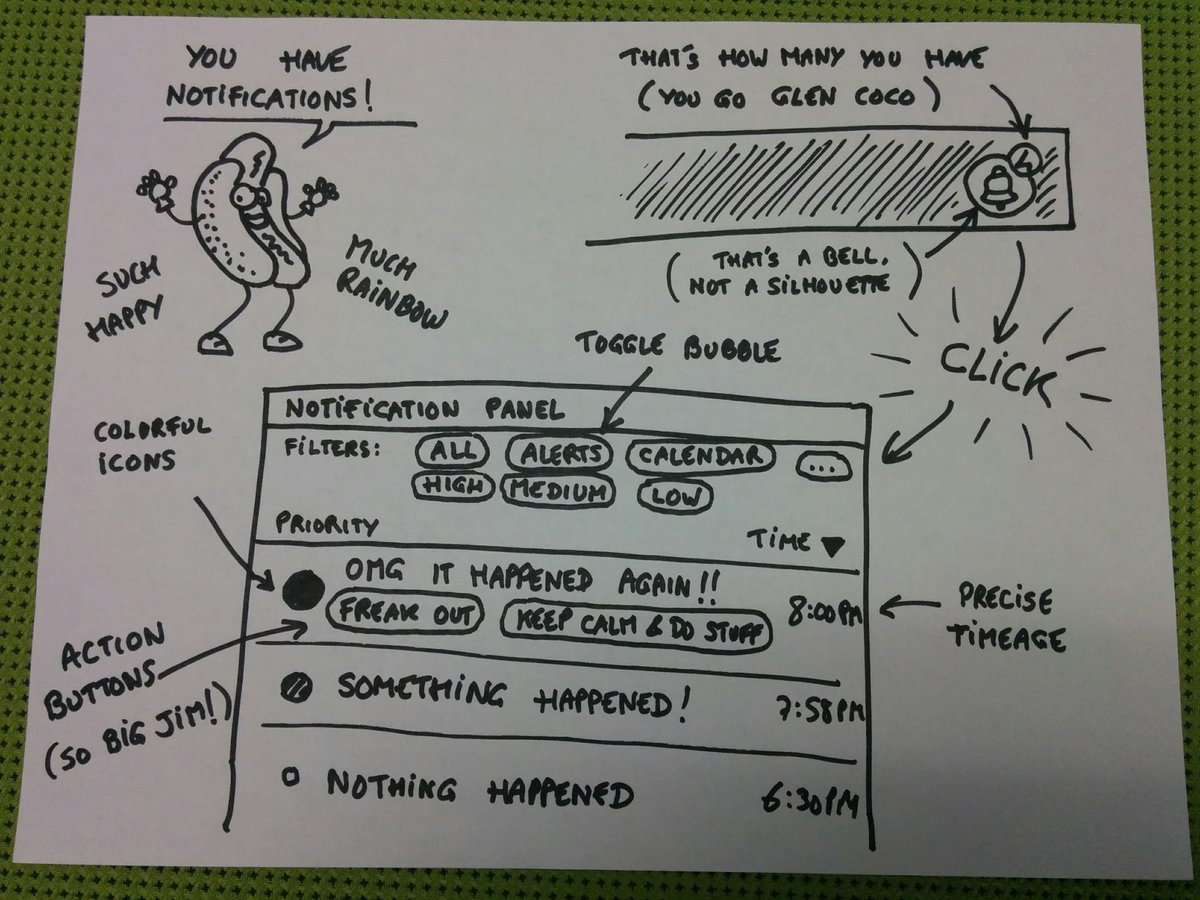 YOU HAVE
NOTIFICATIONS!
THAT'S HOW MANY YOU HAVE
(YOU GO GLEN COCO)
4
(THAT'S A BELL,
NOT A SILHOUETTE)
SUCH
HAPPY
MUCH
RAINBOW
CLICK
TOGGLE BUBBLE
NOTIFICATION PANEL
COLORFUL
ICONS
FILTERS: ALL ALERTS CALENDAR ...
HIGH MEDIUM LOW
PRIORITY TIME ▼
OMG IT HAPPENED AGAIN!!
FREAK OUT KEEP CALM & DO STUFF 8:00PM
PRECISE
TIMEAGE
ACTION
BUTTONS
(SO BIG JIM!)
SOMETHING HAPPENED! 7:58PM
NOTHING HAPPENED 6:30PM